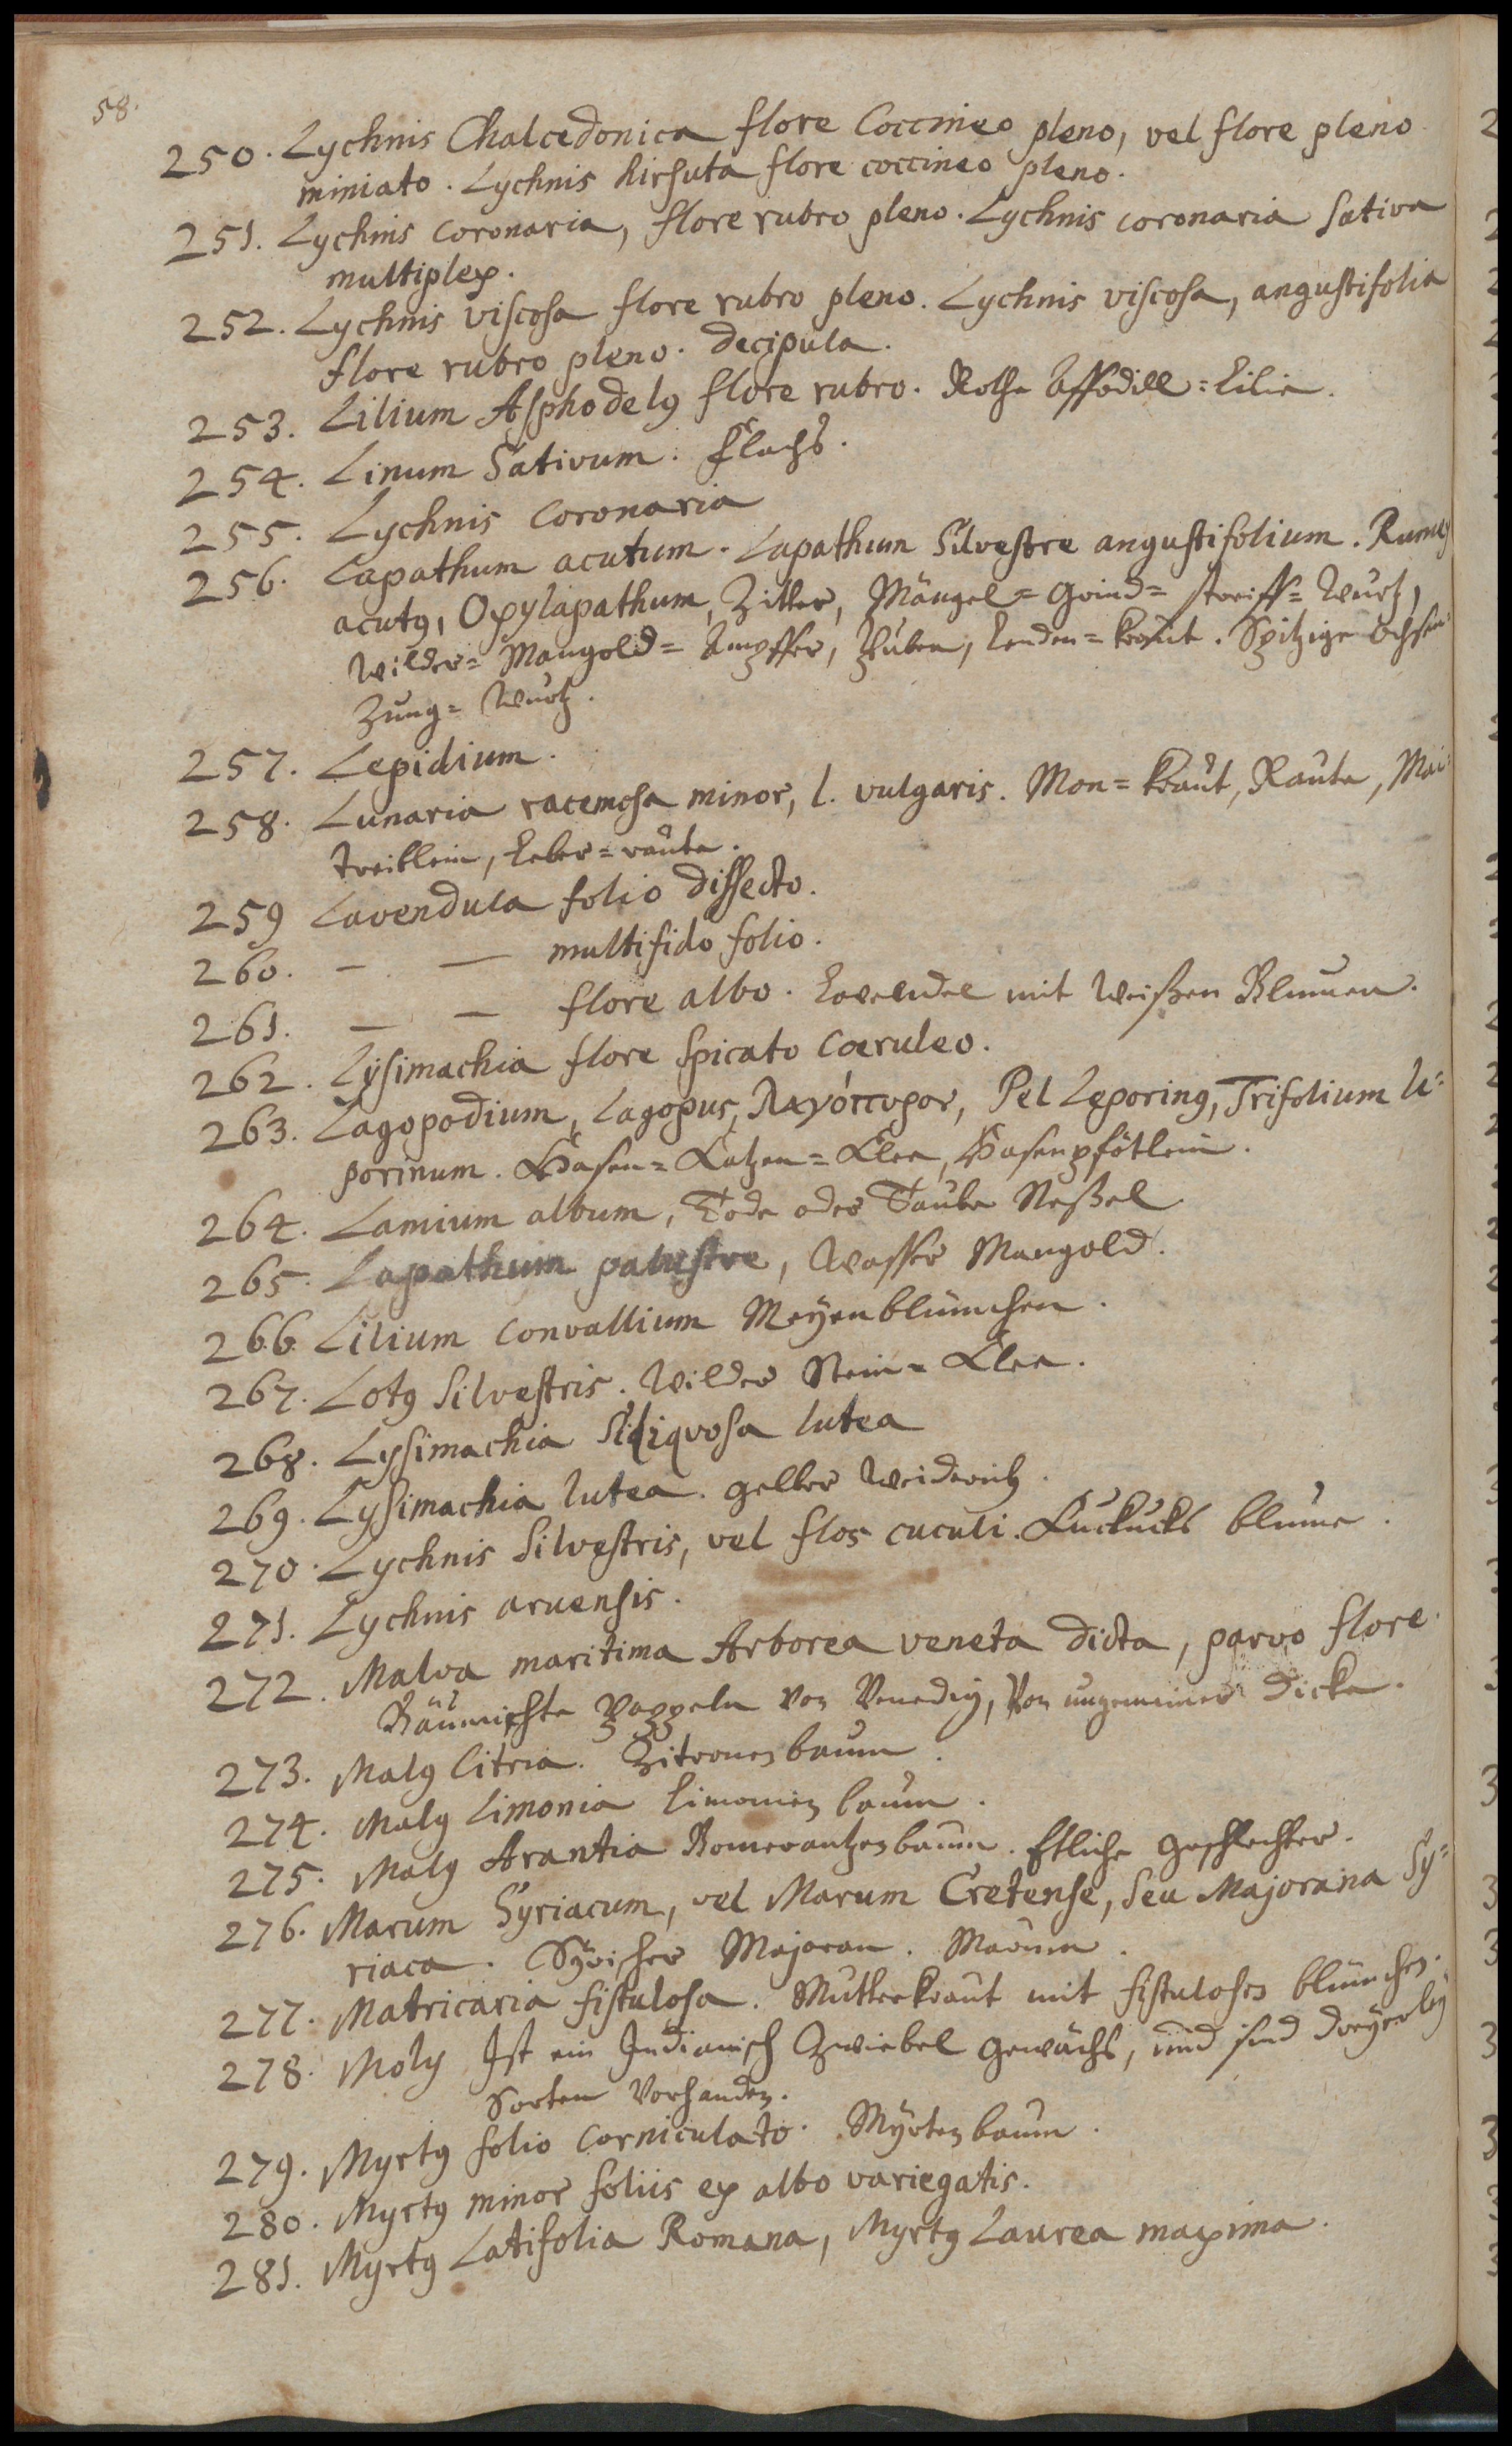 58.
250. Lychnis Chalcedonica flore Coccineo pleno, vel flore pleno
miniato. Lychnis hirsuta flore coccineo pleno.
251. Lychnis coronaria, flore rubro pleno. Lychnis coronaria sativa
multiplex.
252. Lychnis viscosa flore rubro pleno. Lychnis viscosa, angustifolia
flore rubro pleno. decipula.
253. Lilium Asphodelꝰ flore rubro. Rothe Affodill=Lilie.
254. Linum Sativum. Flachs.
255. Lychnis coronaria
256. Lapathum acutum. Lapathum Silvestre angustifolium. Rumex
acutꝰ, Oxylapathum, Zitter, Mängel= Grind= streiff= Wurtz,
Wilder= Mangold= Ampffer, Lenden= kraut. Spitzige Ochsen
Zung= Wurtz.
257. Lepidium.
258. Lunaria racemosa minor, l. vulgaris. Mon= kraut, Raute, Mai
treiblein, Leber= raute.
259 Lavendula folio dissecto.
260. — — multifido folio.
261. — — flore albo. Lavendel mit Weißen Blumen.
262. Lysimachia flore spicato coeruleo.
263. Lagopodium, Lagopus, Λαγόπυρον, Pes Leporinꝰ, Trifolium le=
porinum. Hasen= Katzen= Klee, Hasenpfötlein.
264. Lamium album, Tode oder Taube Neßel
265. Lapathum palustre, Wasser Mangold.
266. Lilium convallium Meyenblümchen.
267. Lotꝰ Silvestris. Wilder Stein= Klee.
268. Lysimachia Siliqvosa lutea
269. Lysimachia lutea. gelber Weiderich.
270. Lychnis Silvestris, vel flos cuculi. Kuckucks blume.
271. Lychnis arvensis.
272. Malva maritima Arborea veneta dicta, parvo flore.
Bäumichte Pappeln von Venedig, Von ungemeiner Dicke.
273. Malꝰ Citria. Zitronenbaum.
274. Malꝰ Limonia Limonien baum.
275. Malꝰ Arantia Pomerantzenbaum. Etliche Geschlechter.
276. Marum Syriacum, vel Marum Cretense, seu Majorana Sy=
riaca. Syrischer Majoran. Marum.
277. Matricaria fistulosa. Mutterkraut mit fistulosen blümchen.
278. Moly Ist ein Indianisch Zwiebel Gewächs, und sind dreyerley
Sorten Vorhanden.
279. Myrtꝰ folio corniculato. Myrtenbaum.
280. Myrtꝰ minor foliis ex albo variegatis.
281. Myrtꝰ Latifolia Romana, Myrtꝰ Laurea maxima.